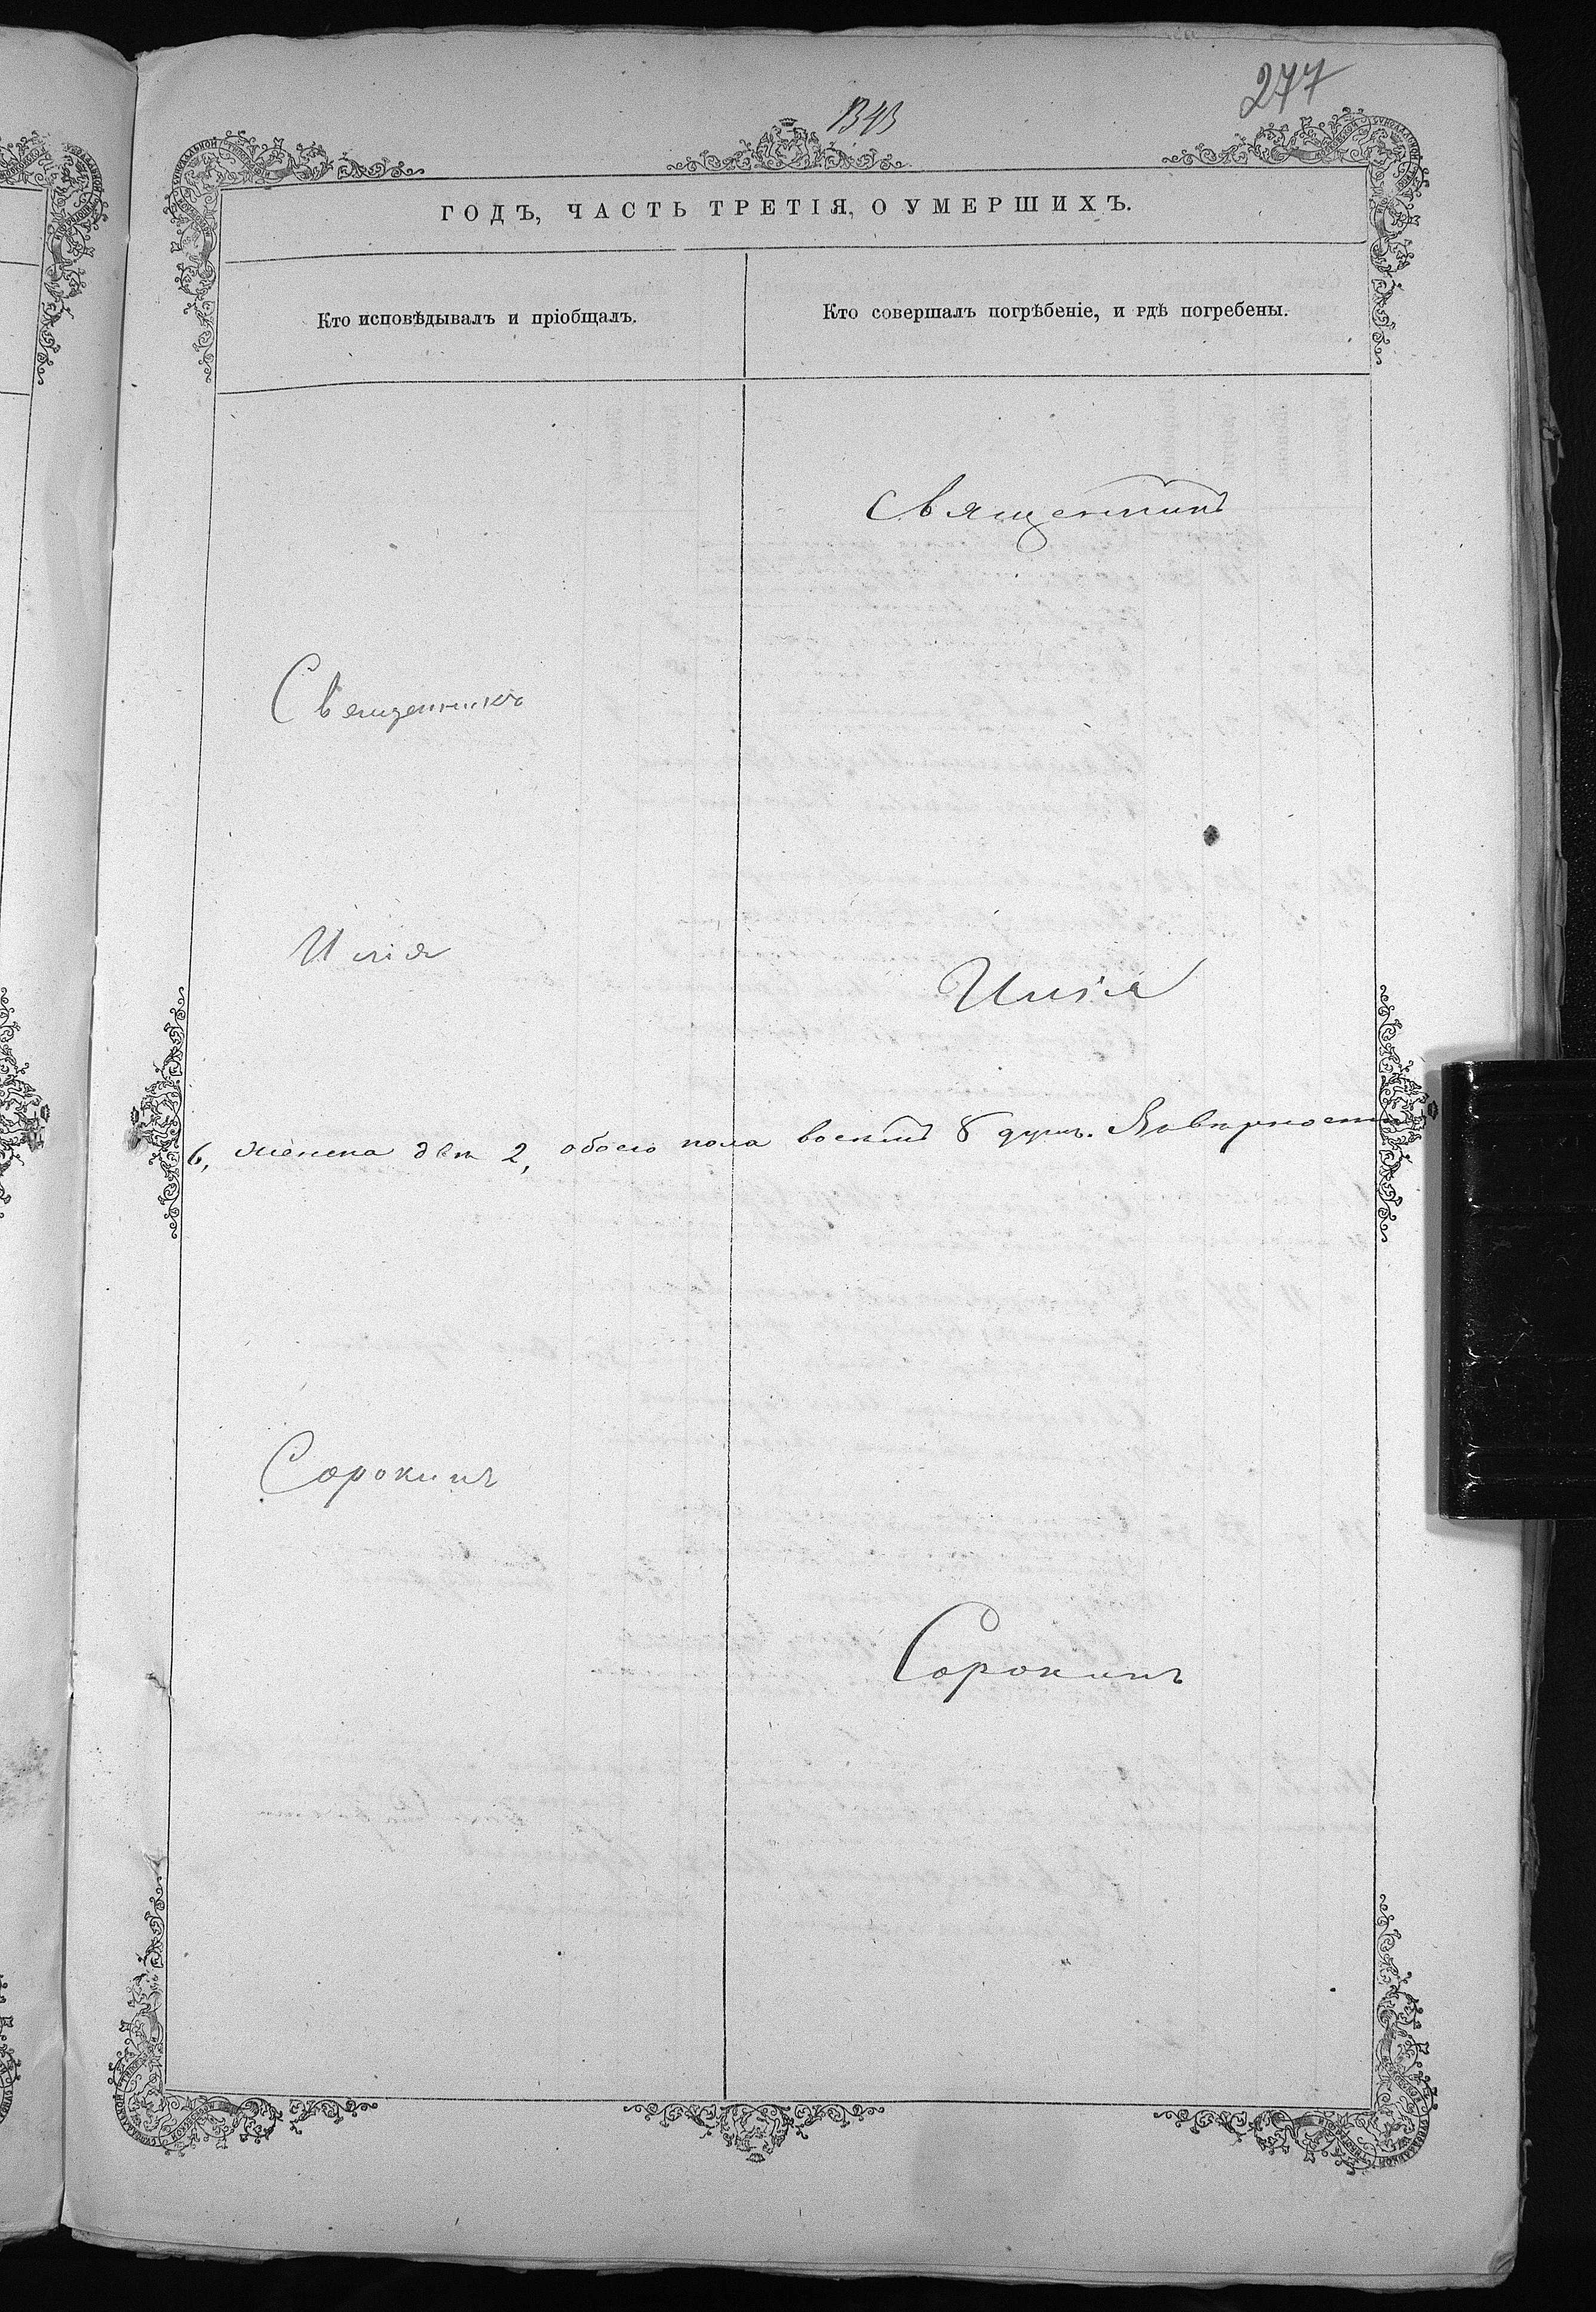 277
1343
ГОДЪ, ЧАСТЬ ТРЕТІЯ, О УМЕРШИХЪ.
Кто исповѣдывалъ и пріобщалъ.
Кто совершалъ погрѣбеніе, и гдѣ погребены.
Священникъ
Священникъ
Илія
Илія
6, женска двѣ 2, обоего пола восемь 8 душъ.
Сорокинъ
Сорокинъ